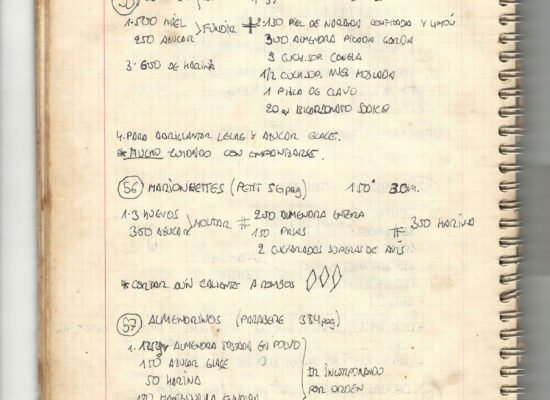 1. 500 MIEL > FUNDIR + 2. 130 PIEL DE NARANJA CONFITADA Y LIMÓN
250 AZUCAR 300 ALMENDRA PICADA GORDA
3 CUCH.SOP. CANELA
3. 600 DE HARINA 1/2 CUCH.SOP. NUEZ MOSCADA
1 PIZCA DE CLAVO
20 gr BICARBONATO SODICO
4. PARA ABRILLANTAR LECHE Y AZUCAR GLACE.
* MUCHO CUIDADO CON EMPANIZARSE.
56 MARIONETTES (PETIT 56 pag) 150° 30m.
1. 3 HUEVOS > MONTAR # 200 ALMENDRA ENTERA
350 AZUCAR 150 PASAS # 350 HARINA
2 CUCHARADAS SOPERAS DE ANÍS
* CORTAR AÚN CALIENTE A ROMBOS
57 ALMENDRINOS (PARABERE 384 pag)
1. 125 gr ALMENDRA TOSTADA EN POLVO
150 AZUCAR GLACE
50 HARINA IR INCORPORANDO
MANTEQUILLA FUNDIDA POR ORDEN